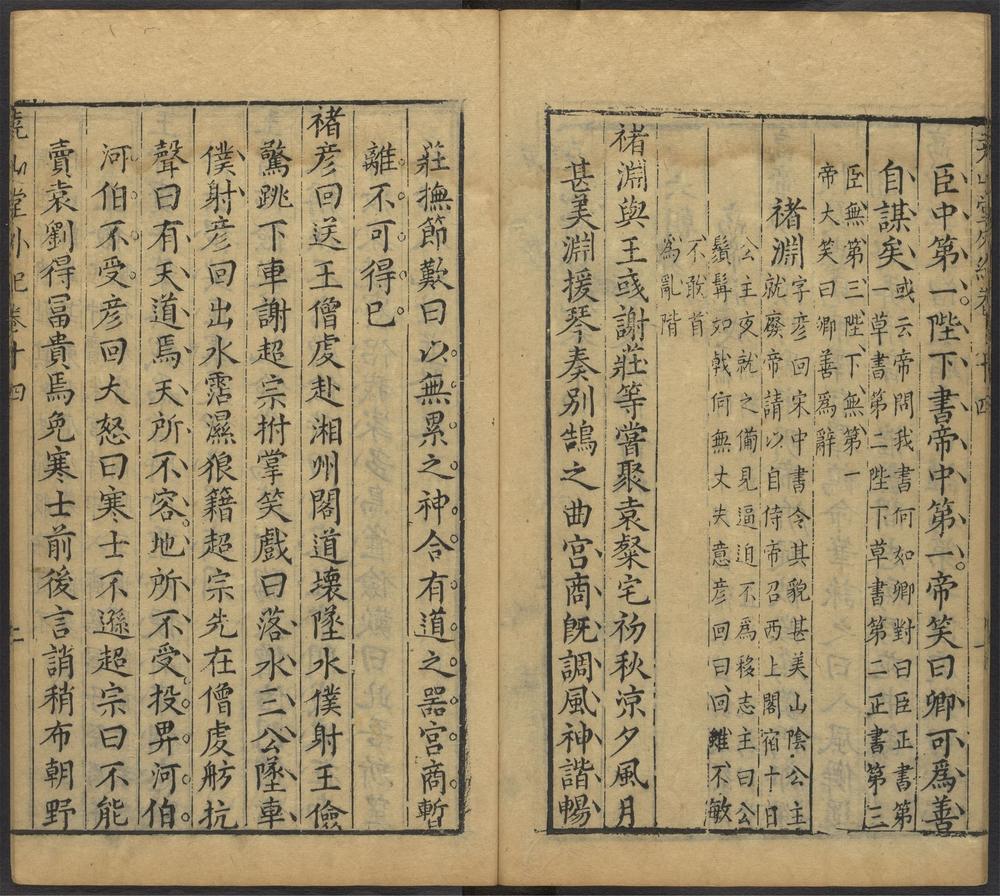 臣中第一陛下書帝中第一帝笑曰卿可爲善
自謀矣
或云帝問我書何如卿對曰臣正書第
一草書第二陛下草書第二正書第三
臣無第三陛下無第一
帝大笑曰卿善爲辭
褚淵
字彦回宋中書令其貌甚美山陰公主
就廢帝請以自侍帝召西上閣宿十日
公主夜就之備見逼迫不爲移志主曰公
鬚髯如戟何無丈夫意彦回曰回雖不敏
不敢首
爲亂階
褚淵與王彧謝莊等嘗聚袁粲宅初秋涼夕風月
甚美淵援琴奏别鵠之曲宫商旣調風神諧暢
莊撫節歎曰以無累之神合有道之器宫商暫
離不可得已
褚彦回送王僧虔赴湘州閣道壞墜水僕射王儉
驚跳下車謝超宗拊掌笑戲曰落水三公墜車
僕射彦回出水霑濕狼籍超宗先在僧虔舫抗
聲曰有天道焉天所不容地所不受投畀河伯
河伯不受彦回大怒曰寒士不遜超宗曰不能
賣袁劉得冨貴焉免寒士前後言誚稍布朝野
堯山堂外紀卷十四